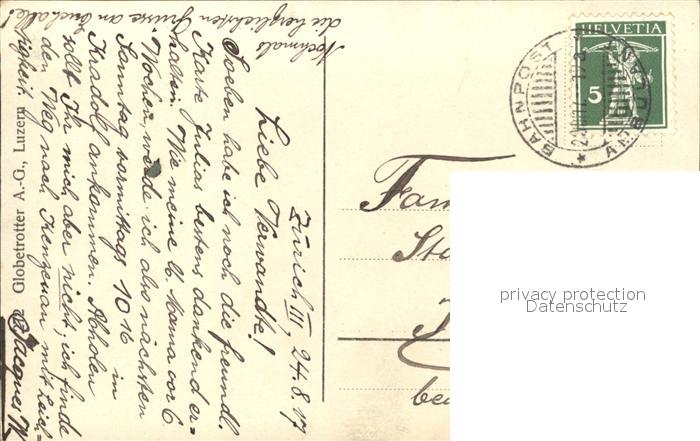 Zürich III, 24.8.17
Liebe Verwandte!
Soeben habe ich noch die freundl.
Karte Julias bestens dankend er=
halten. Wie meine lb. Mama vor 6
Wochen werde ich also nächsten
Samstag vormittags 10 16 in
Kradolf ankommen. Abholen
sollt Ihr mich aber nicht, ich finde
den Weg nach Kenzenau mit Leich=
tigkeit. Jacques
Nochmals
die herzlichsten Grüsse an Euch alle!
Globetrotter A.-G., Luzern
HELVETIA
5
BAHNPOST
AMBULANT
Fam
Sta
bei
privacy protection
for Download